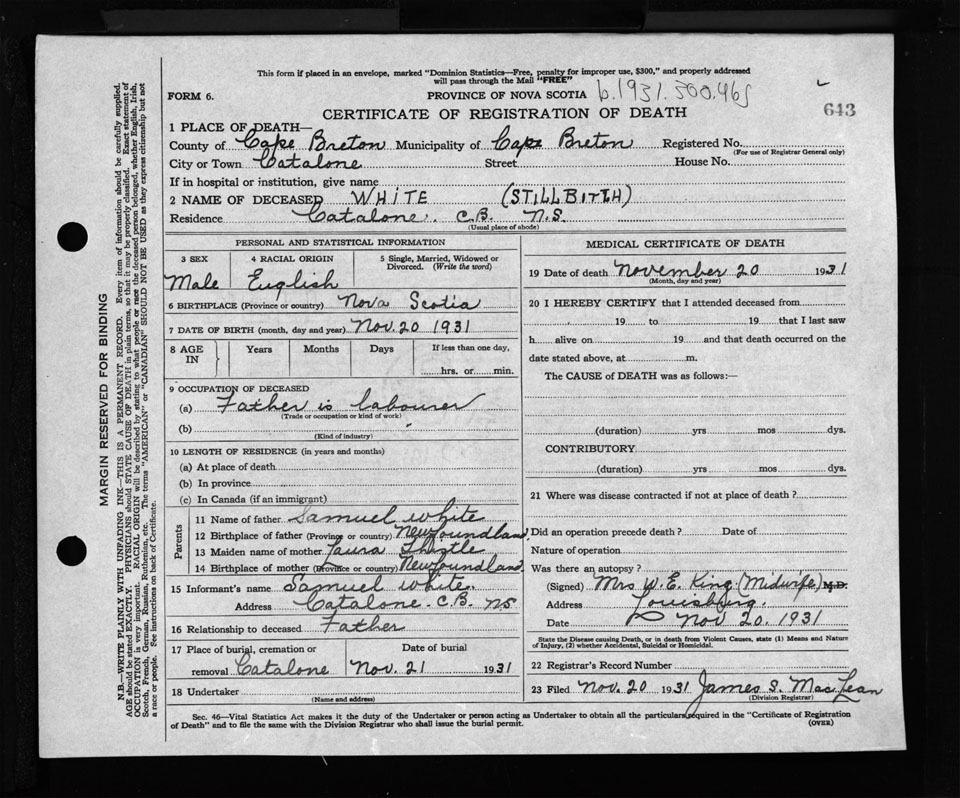 This form if placed in an envelope, marked "Dominion Statistics—Free, penalty for improper use, $300," and properly addressed
will pass through the Mail "FREE"
FORM 6.
PROVINCE OF NOVA SCOTIA
b.1931.300.465
643
CERTIFICATE OF REGISTRATION OF DEATH
1 PLACE OF DEATH—
County of Cape Breton Municipality of Cape Breton Registered No.
(For use of Registrar General only)
City or Town Catalone Street House No.
If in hospital or institution, give name
2 NAME OF DECEASED WHITE (STILLBITTH)
Residence Catalone. C.B. N.S.
(Usual place of abode)
PERSONAL AND STATISTICAL INFORMATION
3 SEX 4 RACIAL ORIGIN 5 Single, Married, Widowed or
Divorced. (Write the word)
Male English
6 BIRTHPLACE (Province or country) Nova Scotia
7 DATE OF BIRTH (month, day and year) Nov. 20 1931
8 AGE IN Years Months Days If less than one day,
hrs. or min.
9 OCCUPATION OF DECEASED
(a) Father is labourer
(Trade or occupation or kind of work)
(b)
(Kind of industry)
10 LENGTH OF RESIDENCE (in years and months)
(a) At place of death
(b) In province
(c) In Canada (if an immigrant)
Parents
11 Name of father Samuel White
12 Birthplace of father (Province or country) Newfoundland.
13 Maiden name of mother Laura Thistle
14 Birthplace of mother (Province or country) Newfoundland.
15 Informant's name Samuel White.
Address Catalone. C.B. NS
16 Relationship to deceased Father
17 Place of burial, cremation or Date of burial
removal Catalone Nov. 21 1931
18 Undertaker
(Name and address)
MEDICAL CERTIFICATE OF DEATH
19 Date of death November 20 1931
(Month, day and year)
20 I HEREBY CERTIFY that I attended deceased from
19 to 19 that I last saw
h alive on 19 and that death occurred on the
date stated above, at m.
The CAUSE of DEATH was as follows:—
(duration) yrs mos dys.
CONTRIBUTORY
(duration) yrs mos dys.
21 Where was disease contracted if not at place of death?
Did an operation precede death? Date of
Nature of operation
Was there an autopsy?
(Signed) Mrs W. E. King (Midwife) M.D.
Address Louisburg.
Date Nov 20. 1931
State the Disease causing Death, or in death from Violent Causes, state (1) Means and Nature
of Injury, (2) whether Accidental, Suicidal or Homicidal.
22 Registrar's Record Number
23 Filed Nov. 20 1931 James S. MacLean
(Division Registrar)
Sec. 46—Vital Statistics Act makes it the duty of the Undertaker or person acting as Undertaker to obtain all the particulars required in the "Certificate of Registration
of Death" and to file the same with the Division Registrar who shall issue the burial permit.
(OVER)
MARGIN RESERVED FOR BINDING
N.B.—WRITE PLAINLY WITH UNFADING INK—THIS IS A PERMANENT RECORD. Every item of information should be carefully supplied.
AGE should be stated EXACTLY. PHYSICIANS should STATE CAUSE OF DEATH in plain terms, so that it may be properly classified. Exact statement of
OCCUPATION is very important. RACIAL ORIGIN will be described by stating to what people or race the deceased person belonged, whether English, Irish,
Scotch, French, German, Russian, Ruthenian, etc. The terms "AMERICAN" or "CANADIAN" SHOULD NOT BE USED as they express citizenship but not
a race or people. See instructions on back of Certificate.